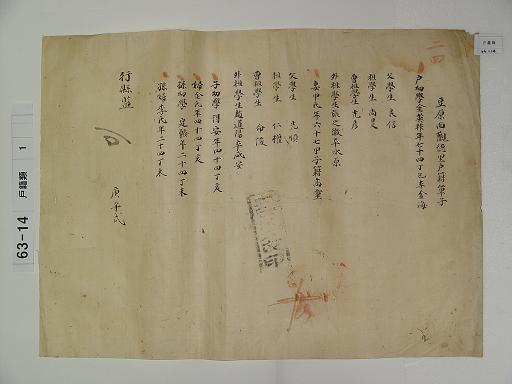 二四
豆原面觀德里戶籍第子
戶幼學金英祚年七十四丁巳本金海
父學生 良信
祖學生 尚昱
曾祖學生 光彦
外祖學生張之徵本水原
妻申氏年六十七甲子籍高靈
父學生 光順
祖學生 仁權
曾祖學生 命
外祖學生趙道陽本咸安
子幼學 得 年四十四丁亥
婦金氏年四十四丁亥
孫幼學 定 年二十四丁未
孫婦李氏年二十四丁未
行縣監
庚午式
戶籍類 1
63-14